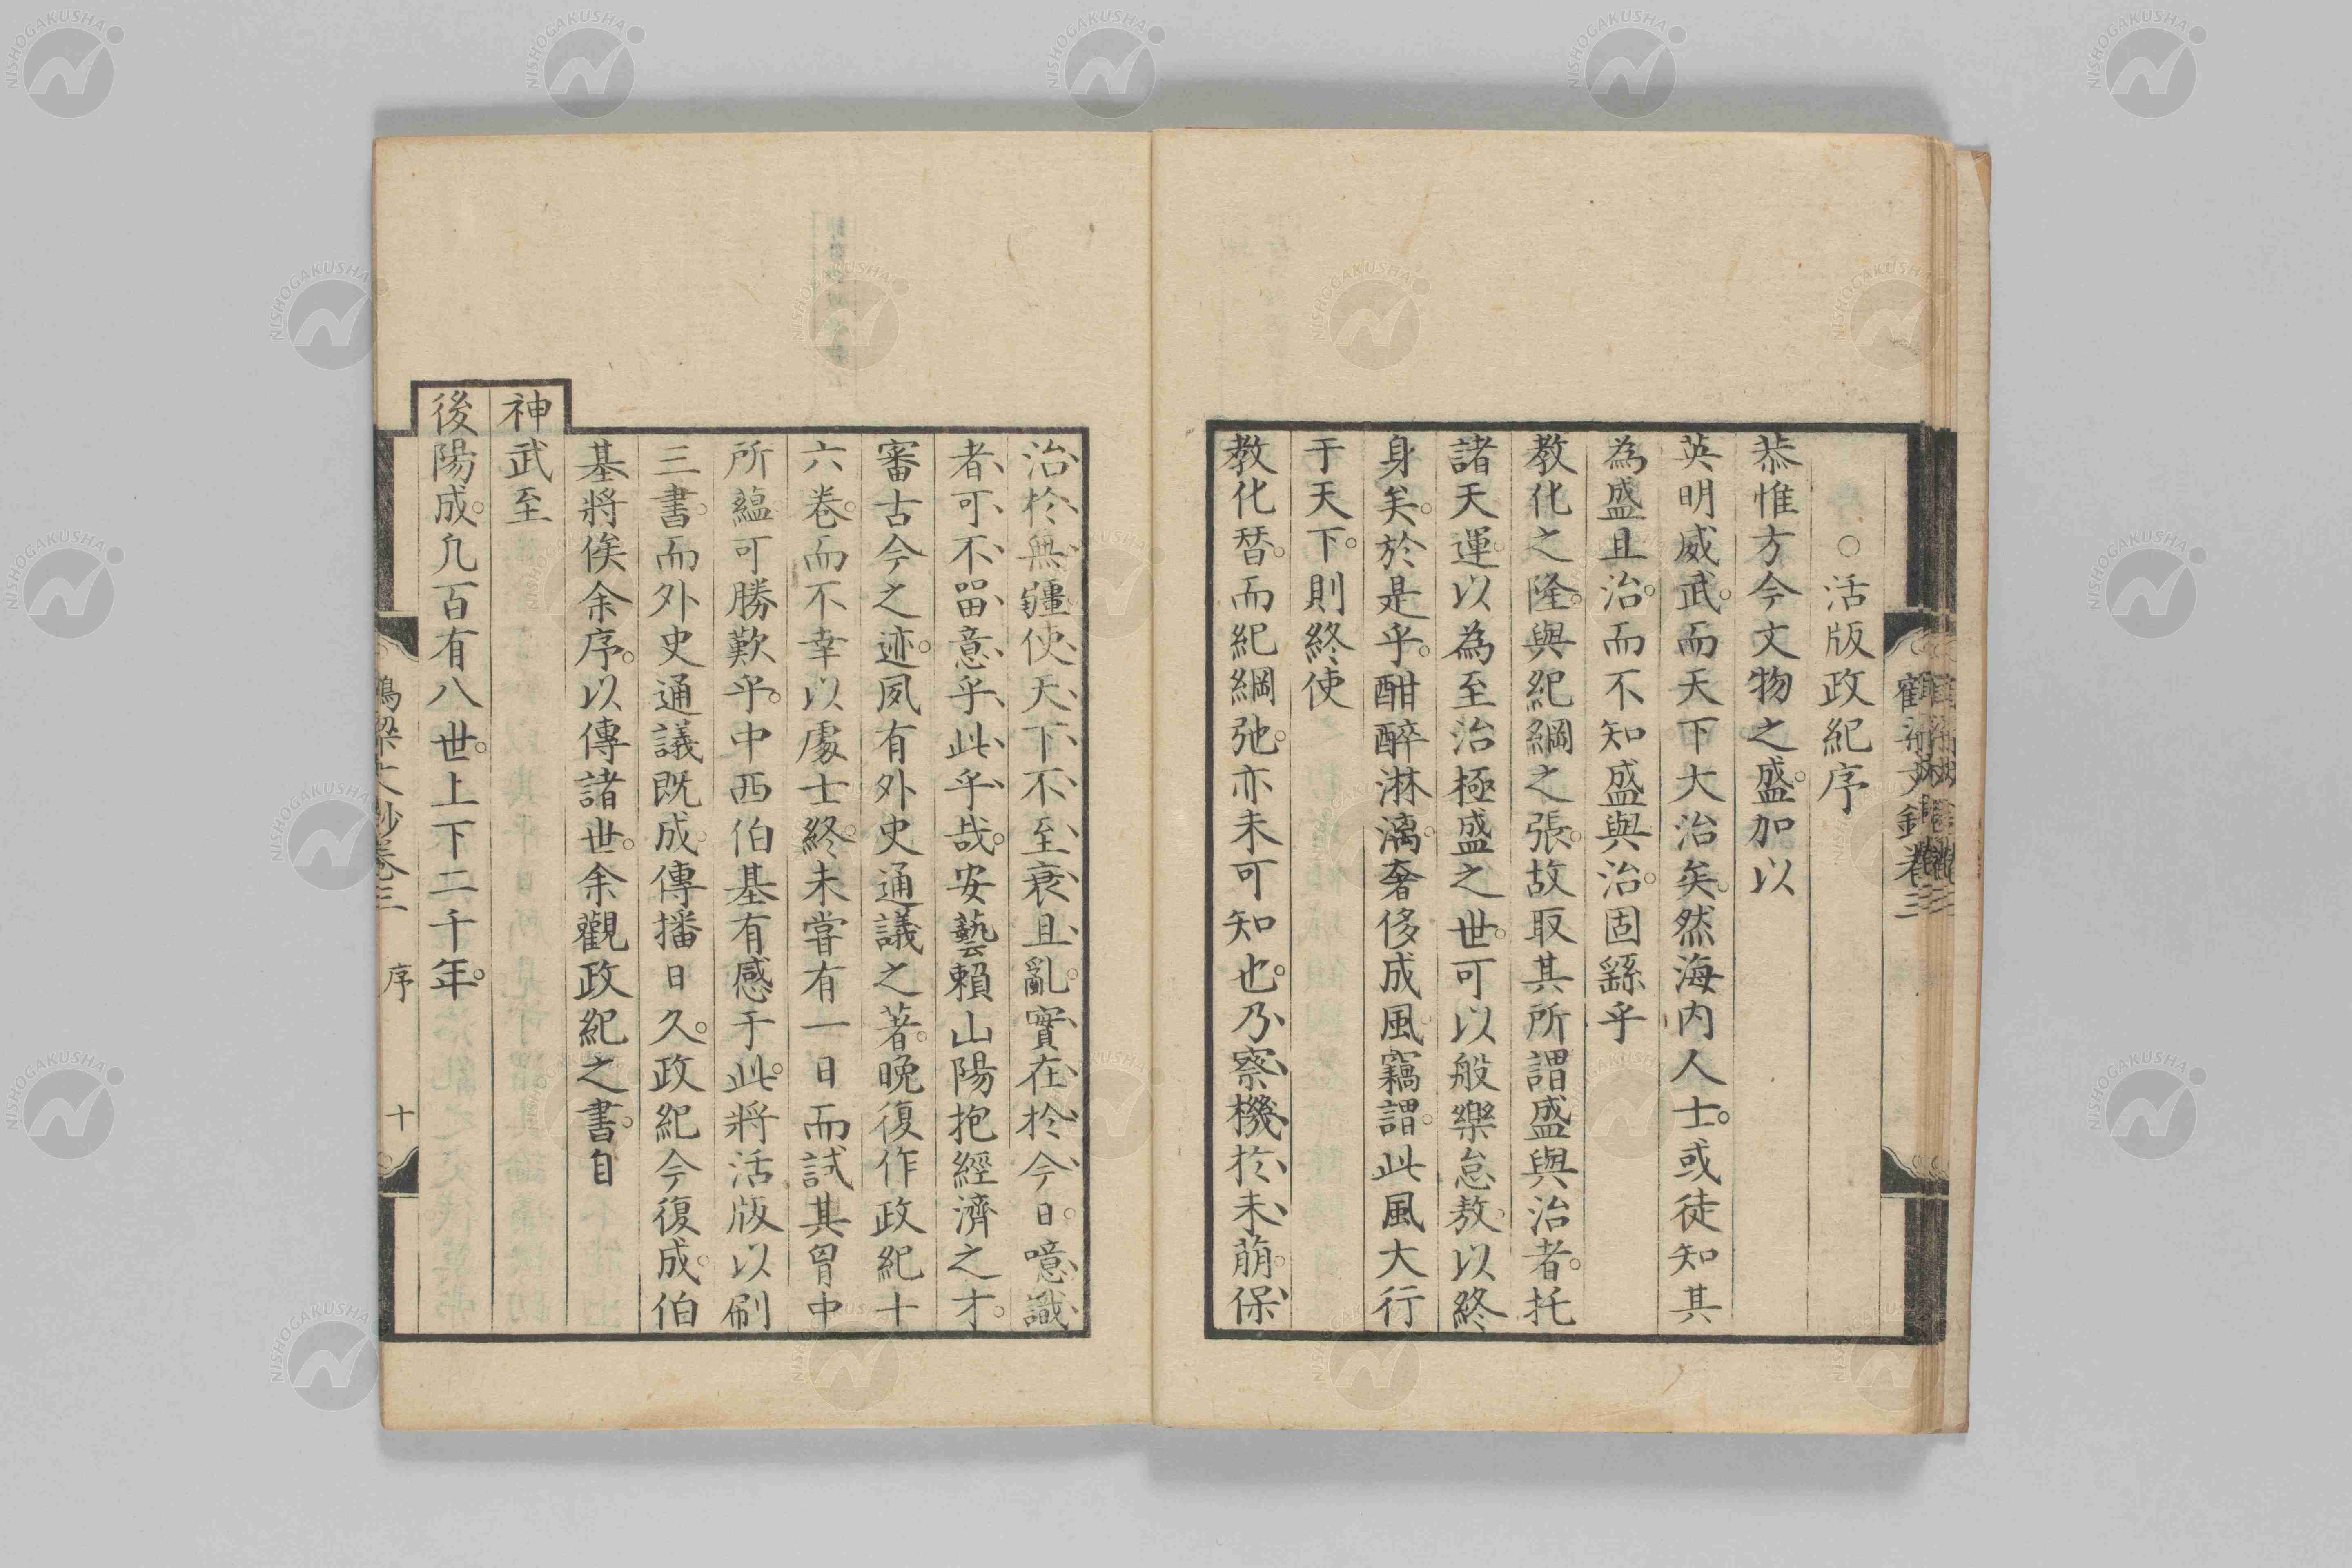 ○活版政紀序
恭惟方今文物之盛。加以
英明威武。而天下大治矣。然海內人士。或徒知其
為盛且治。而不知盛與治。固繇乎
教化之隆。與紀綱之張。故取其所謂盛與治者。托
諸天運。以為至治極盛之世。可以般樂怠敖。以終
身矣。於是乎。酣醉淋漓。奢侈成風。竊謂。此風大行
于天下。則終使
教化朁。而紀綱弛。亦未可知也。乃察機於未萠。保
治於無疆。使天下不至衰且亂。實在於今日。噫識
者可不畱意乎。此乎哉。安藝賴山陽抱經濟之才。
審古今之迹。夙有外史通議之著。晚復作政紀十
六卷。而不幸以處士終。未嘗有一日而試其胷中
所蘊。可勝歎乎。中西伯基有感于此。將活版以刷
三書。而外史通議既成。傳播日久。政紀今復成。伯
基將俟余序。以傳諸世。余觀政紀之書。自
神武至
後陽成。凢百有八世。上下二千年。
序
十
NISHOGAKUSHA